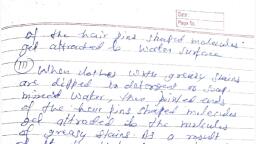 Date
Page No.
of the hair pins shaped molecules
get attracted to water surface
(iii) When clothes with greasy stains
are dipped to detergent or soap
mixed water, then pointed ends
of the hair pins shaped molecules
get attracted to the molecules
of greasy stains. As a result